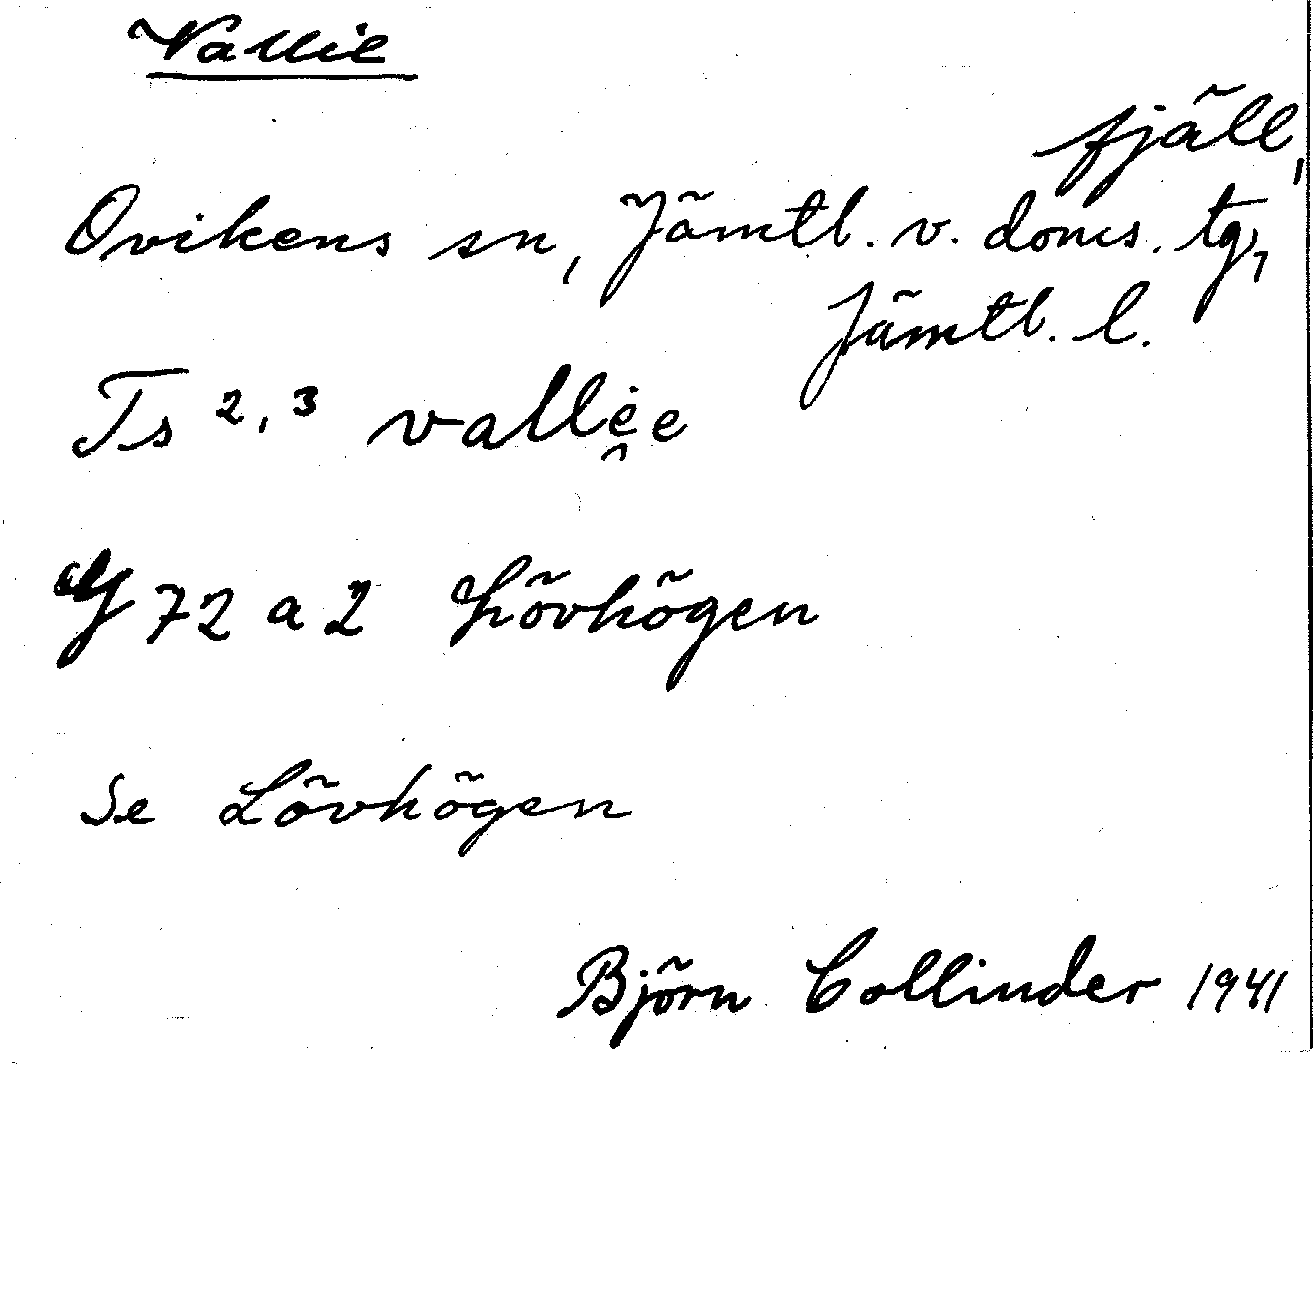 Vallie
fjäll,
Ovikens sn, Jämtl. v. doms. tg,
Jämtl. l.
Ts 2,3 vallė̯e
G 72 a 2 Lövhögen
Se Lövhögen
Björn Collinder 1941